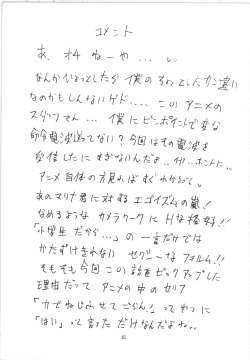 コメント
あ、オイ ねーや...、い
なんかひょっとしたら 僕のちょっとしたカン違い
なのかもしんないケド....、このアニメの
スタッフさん... 僕にピンポイントで変な
命令電波送ってない?今回はその電波を
受信したに すぎないんだよ..イヤ..ホントに
アニメ自体の方見ればすぐわかるって。
あのマリナ君に対するエゴイズムの嵐!
なめるような カメラワークに Hな格好!!
「小学生だから...」の一言だけでは
かたずけきれない セクシーなフォルム!!
そもそも今回この話をピックアップした
理由だって アニメの中のセリフ
「力でねじふせてごらん!」ってやつに
「はい」って言っただけなんだよね..
35